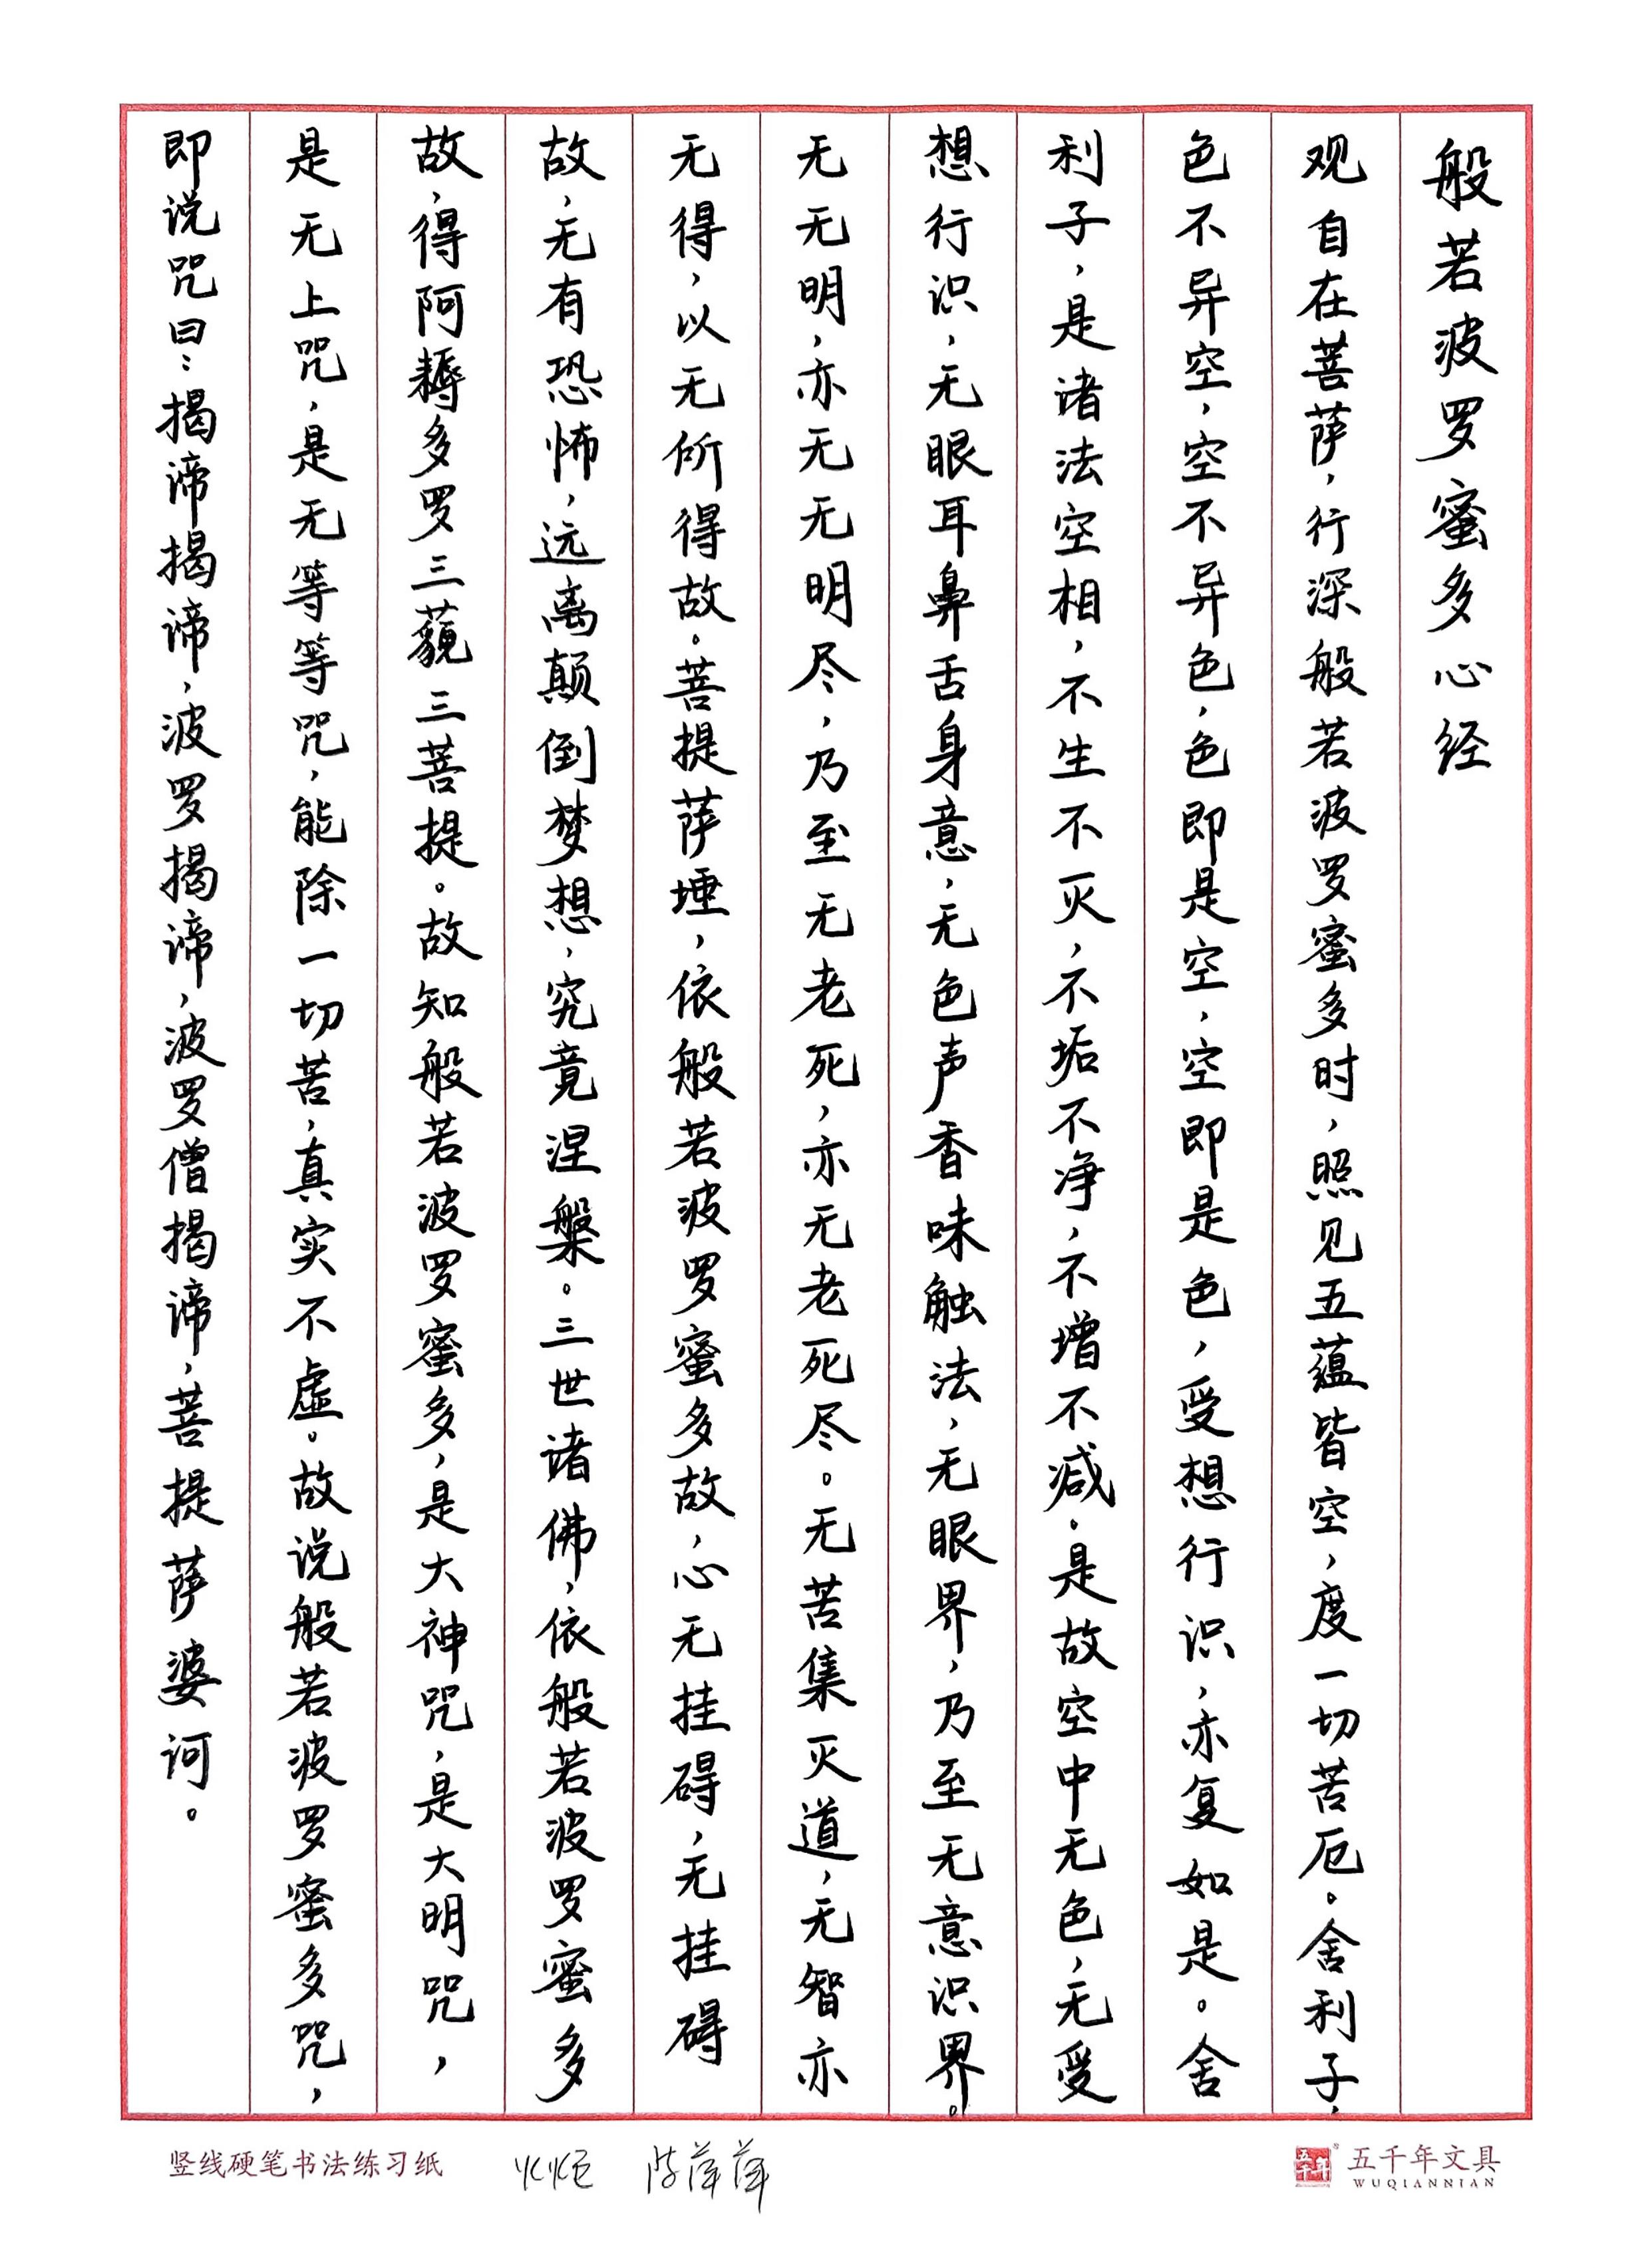 般若波罗蜜多心经
观自在菩萨，行深般若波罗蜜多时，照见五蕴皆空，度一切苦厄。舍利子，
色不异空，空不异色，色即是空，空即是色，受想行识，亦复如是。舍
利子，是诸法空相，不生不灭，不垢不净，不增不减。是故空中无色，无受
想行识，无眼耳鼻舌身意，无色声香味触法，无眼界，乃至无意识界。
无无明，亦无无明尽，乃至无老死，亦无老死尽。无苦集灭道，无智亦
无得，以无所得故。菩提萨埵，依般若波罗蜜多故，心无挂碍，无挂碍
故，无有恐怖，远离颠倒梦想，究竟涅槃。三世诸佛，依般若波罗蜜多
故，得阿耨多罗三藐三菩提。故知般若波罗蜜多，是大神咒，是大明咒，
是无上咒，是无等等咒，能除一切苦，真实不虚。故说般若波罗蜜多咒，
即说咒曰：揭谛揭谛，波罗揭谛，波罗僧揭谛，菩提萨婆诃。
竖线硬笔书法练习纸
五千年文具
WUQIANNIAN